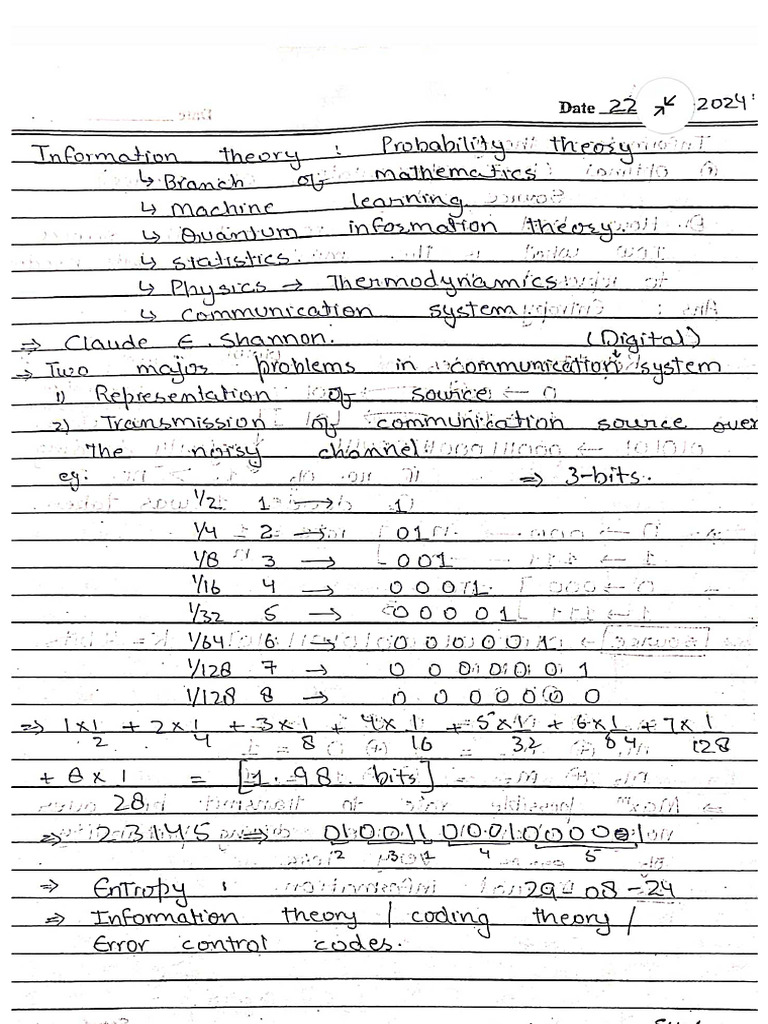 Date 22 2024
Information theory : Probability theory
↳ Branch of mathematics
↳ Machine learning
↳ Quantum information theory
↳ statistics.
↳ Physics → Thermodynamics
↳ communication system
⇒ Claude E. Shannon. (Digital)
→ Two major problems in communication system
1) Representation of source
2) Transmission of communication source over
The noisy channel
eg: ⇒ 3-bits.
1/2 1 → 1
1/4 2 → 01
1/8 3 → 001
1/16 4 → 0001
1/32 5 → 00001
1/64 6 → 000001
1/128 7 → 0000001
1/128 8 → 0000000
⇒ 1×1/2 + 2×1/4 + 3×1/8 + 4×1/16 + 5×1/32 + 6×1/64 + 7×1/128
+ 8×1/28 = [1.98 bits]
⇒ 23145 ⇒ 010011000100001
2 3 1 4 5
⇒ Entropy : 29-08-24
⇒ Information theory / coding theory /
Error control codes.